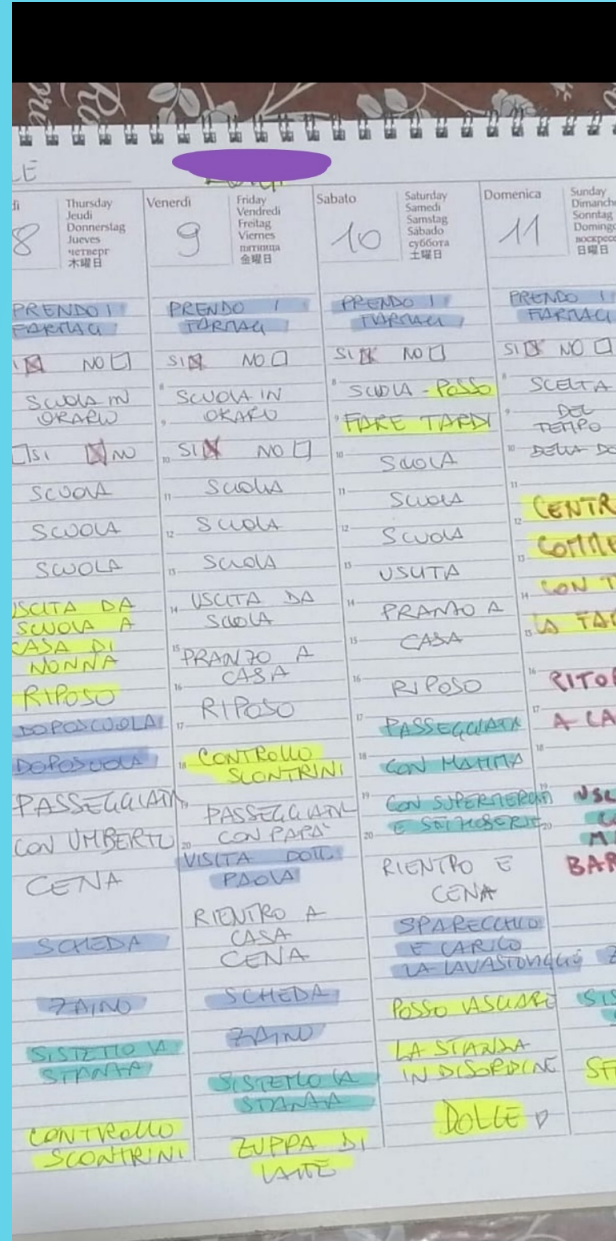 LE
Thursday
Jeudi
Donnerstag
Jueves
четверг
木曜日
8
PRENDO I
FARMACI
SI NO
SCUOLA IN
ORARIO
SI NO
SCUOLA
SCUOLA
SCUOLA
USCITA DA
SCUOLA A
CASA DI
NONNA
RIPOSO
DOPOSCUOLA
DOPOSCUOLA
PASSEGGIATA
CON UMBERTO
CENA
SCHEDA
ZAINO
SISTEMO LA
STANZA
CONTROLLO
SCONTRINI
Venerdì
9
Friday
Vendredi
Freitag
Viernes
пятница
金曜日
PRENDO I
FARMACI
SI NO
8
SCUOLA IN
9
ORARIO
10 SI NO
11 SCUOLA
12 SCUOLA
13 SCUOLA
14 USCITA DA
SCUOLA
15 PRANZO A
CASA
16
RIPOSO
17
18 CONTROLLO
SCONTRINI
19 PASSEGGIATA
CON PAPÀ
20
VISITA DOTT.
PAOLA
RIENTRO A
CASA
CENA
SCHEDA
ZAINO
SISTEMO LA
STANZA
ZUPPA DI
LATTE
Sabato
10
Saturday
Samedi
Samstag
Sábado
суббота
土曜日
PRENDO I
FARMACI
SI NO
8 SCUOLA - POSSO
9 FARE TARDI
10 SCUOLA
11 SCUOLA
12 SCUOLA
13 USCITA
14 PRANZO A
15 CASA
16 RIPOSO
17 PASSEGGIATA
18 CON MAMMA
19 CON SUPERMERCATI
20
RIENTRO E
CENA
SPARECCHIO
E CARICO
LA LAVASTOVIGLIE
POSSO LASCIARE
LA STANZA
IN DISORDINE
DOLCE
Domenica
11
Sunday
Dimanche
Sonntag
Domingo
воскресе
日曜日
PRENDO I
FARMACI
SI NO
8 SCELTA
9 DEL
TEMPO
10 DELLA DO
11
12 CENTR
13 COMME
14 CON
15 LA
16 RITOR
17 A CA
18
19 USC
20
BAR
SIS